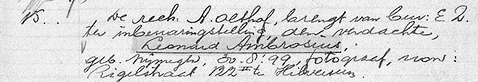 V5... De rech. A. Olthof, brengt van Bur: E D.
ter inbewaringstelling, den verdachte,
Leonard Ambrosius,
geb. Nijmegen, 30.8.'99, fotograaf, won:
Rigelstraat te Hilversum.